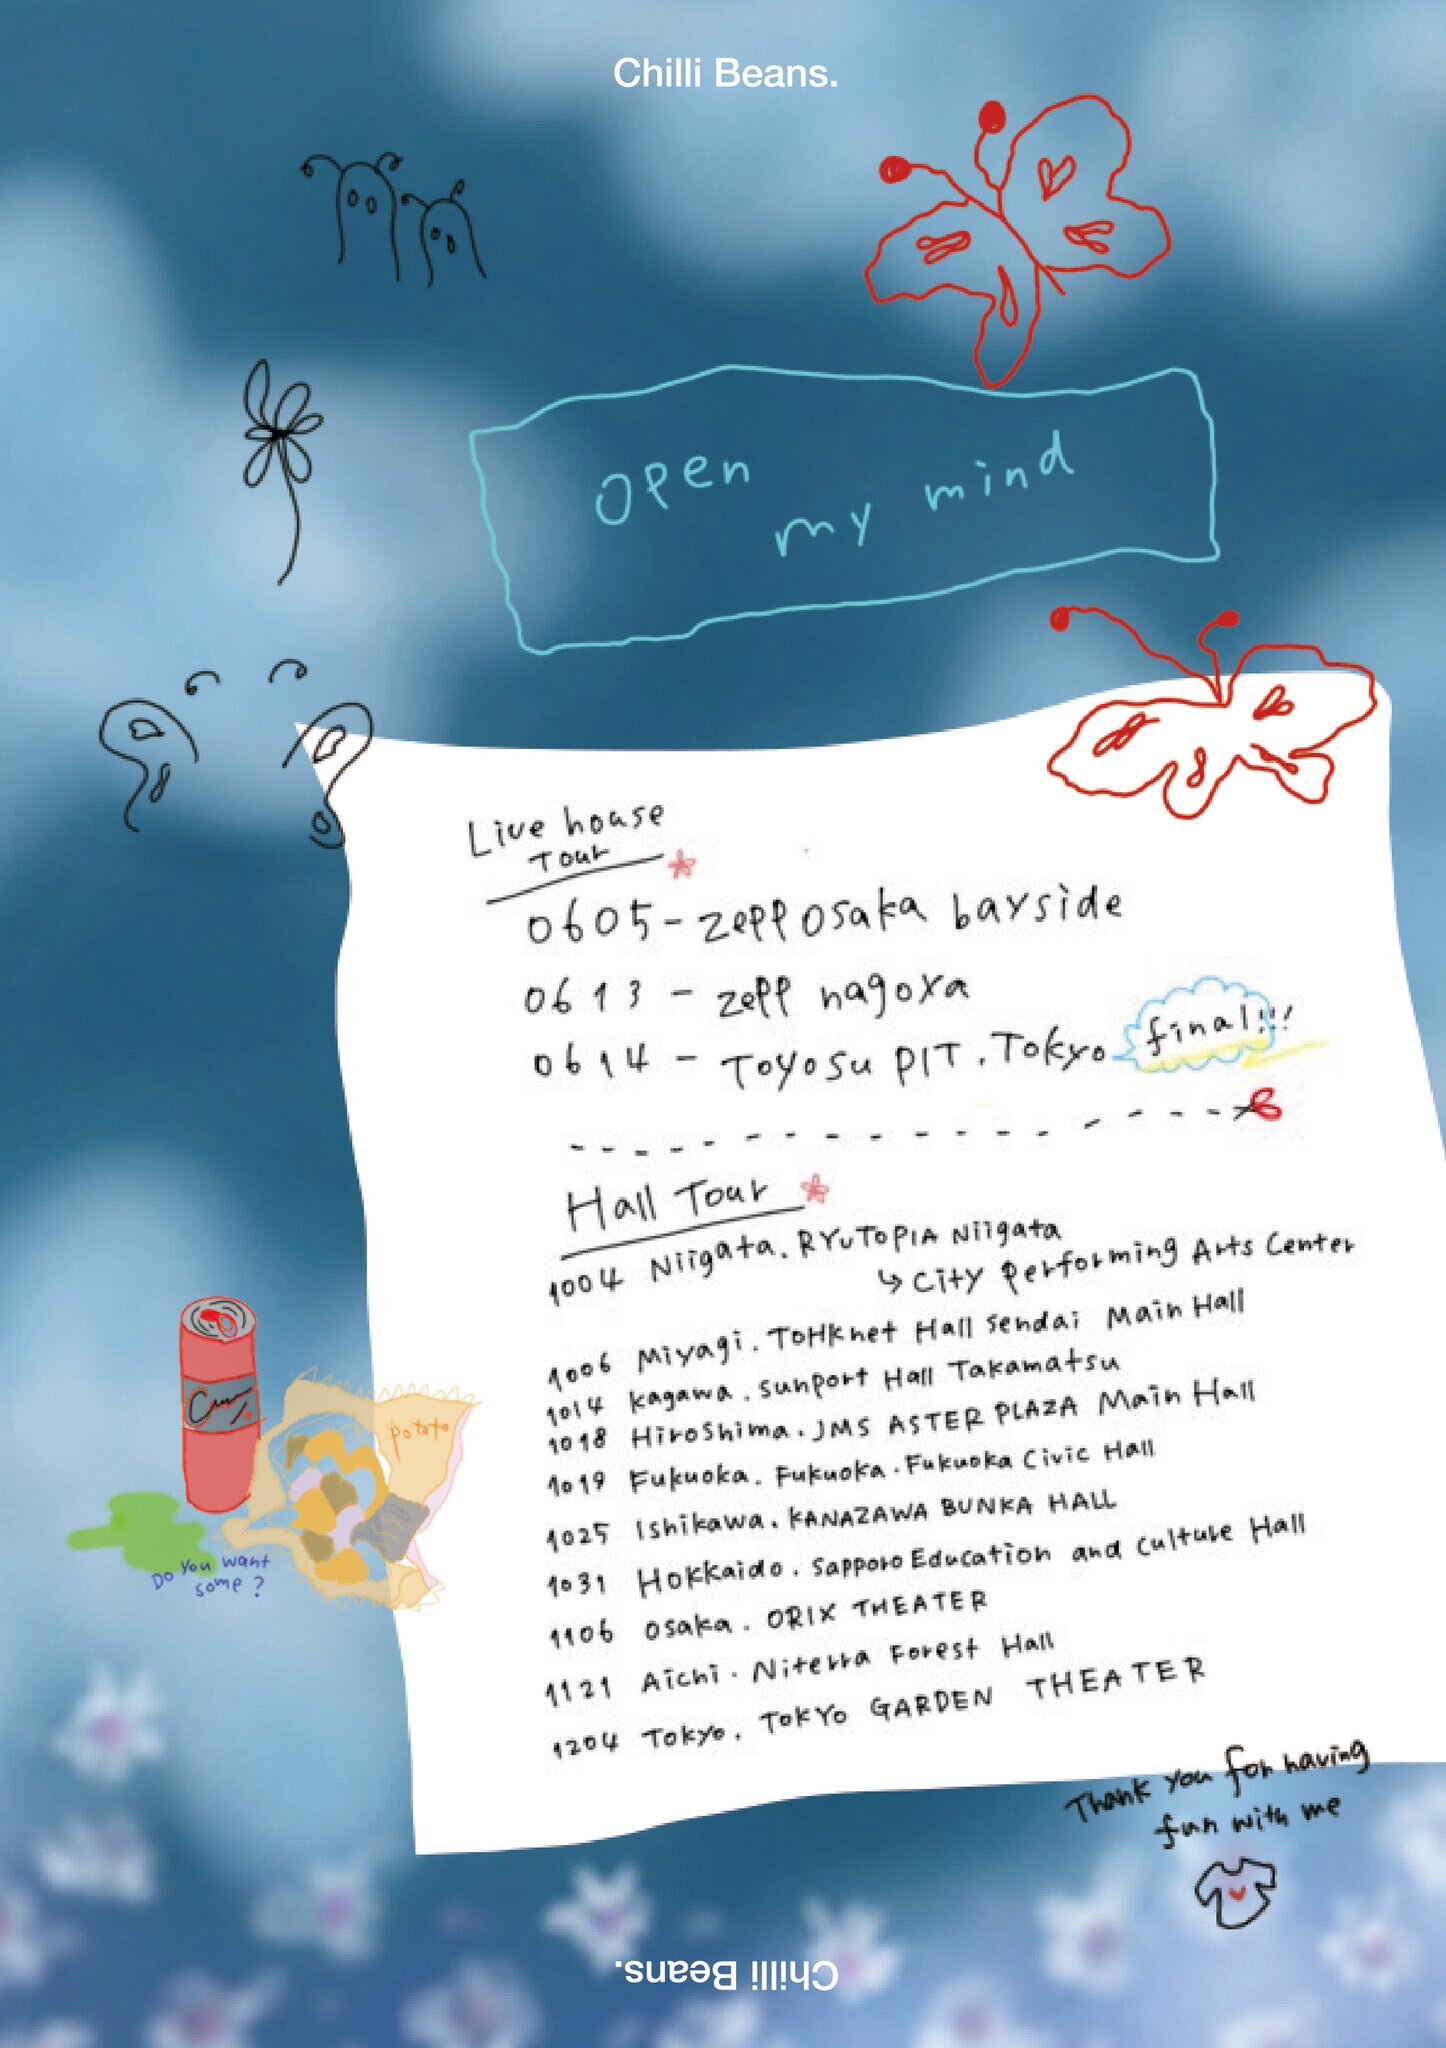 Chilli Beans.
open
my mind
Live house
Tour
0605 - Zepp Osaka bayside
0613 - Zepp nagoya
0614 - TOYOSU PIT. Tokyo final!!!
Hall Tour
1004 Niigata. RYUTOPIA Niigata
↳ City performing Arts Center
1006 Miyagi. TOHKnet Hall Sendai Main Hall
1014 Kagawa. Sunport Hall Takamatsu
1018 Hiroshima. JMS ASTER PLAZA Main Hall
1019 Fukuoka. Fukuoka. Fukuoka Civic Hall
1025 Ishikawa. KANAZAWA BUNKA HALL
1031 Hokkaido. Sapporo Education and culture Hall
1106 Osaka. ORIX THEATER
1121 Aichi. Niterra Forest Hall
1204 Tokyo. TOKYO GARDEN THEATER
potato
Do you want
some?
Thank you for having
fun with me
Chilli Beans.